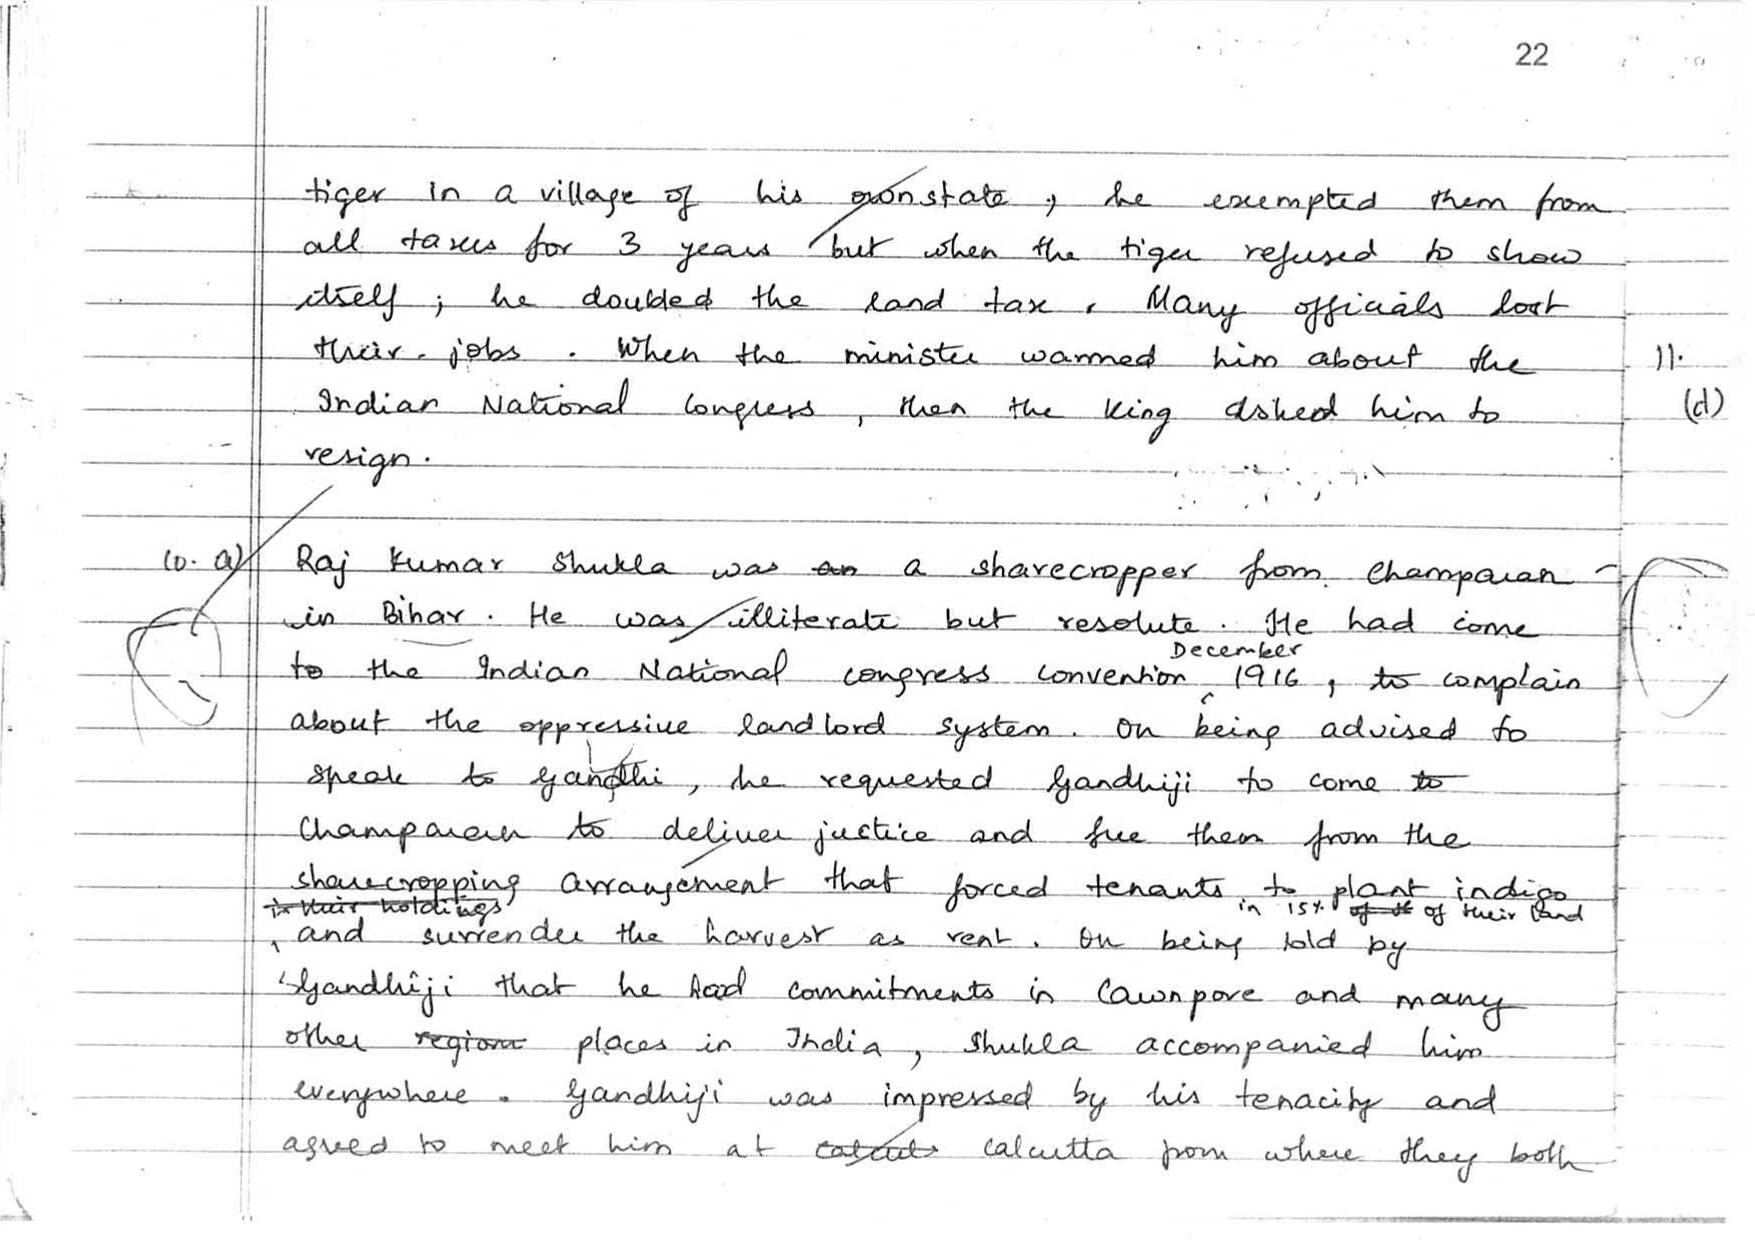 22
tiger in a village of his own state, he exempted them from
all taxes for 3 years but when the tiger refused to show
itself, he doubled the land tax. Many officials lost
their jobs. When the minister warned him about the
11.
Indian National Congress, then the king asked him to
(d)
resign.
10. a) Raj Kumar Shukla was an a sharecropper from Champaran
in Bihar. He was illiterate but resolute. He had come
December
to the Indian National congress convention 1916, to complain
about the oppressive landlord system. On being advised to
speak to Gandhi, he requested Gandhiji to come to
Champaran to deliver justice and free them from the
sharecropping arrangement that forced tenants to plant indigo
in their holdings in 15% of of their land
and surrender the harvest as rent. On being told by
Gandhiji that he had commitments in Cawnpore and many
other region places in India, Shukla accompanied him
everywhere. Gandhiji was impressed by his tenacity and
agreed to meet him at calcutta from where they both